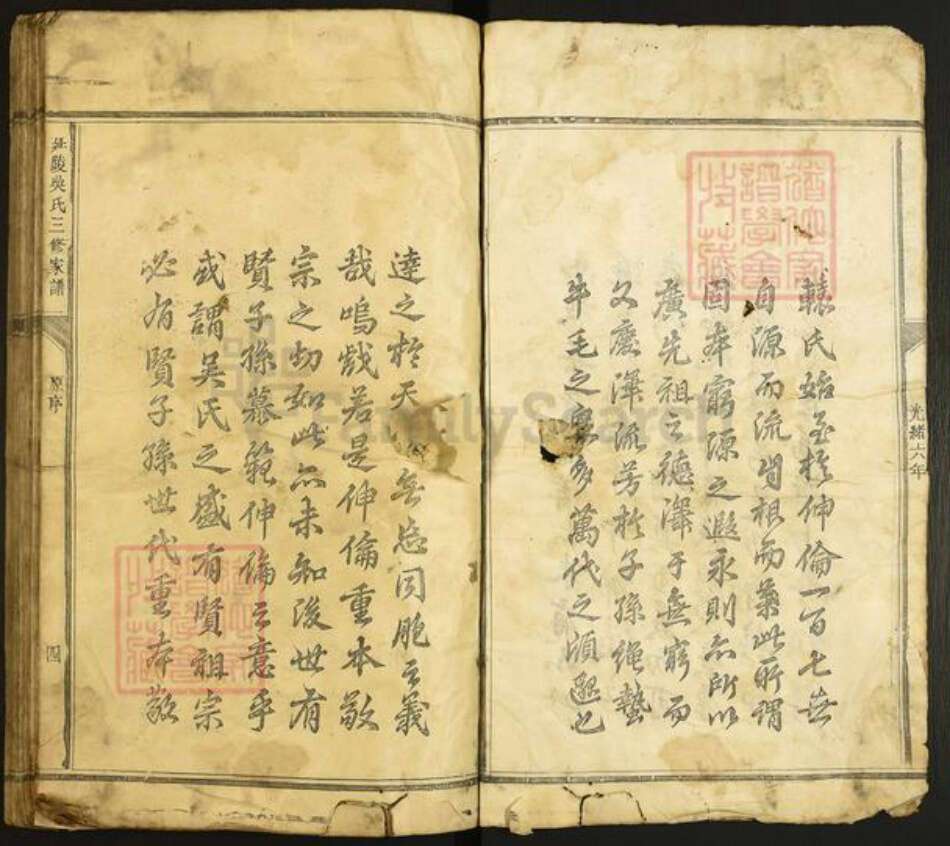 光緒十六年
轅氏始至於伸倫一百七世
自源而流明祖而業此所謂
因本窮源之遐永則亦所以
廣先祖之德澤于無窮而
久慶澤流芳於子孫繩蟄
年毛之衆多萬代之頌
達之於天無忘同胞之義
哉嗚戲若是伸倫重本敬
宗之切如此亦未知後世有
賢子孫慕範伸倫之意乎
或謂吳氏之盛有賢祖宗
必有賢子孫世代重本敬
延陵吳氏三修家譜
原序
四
FamilySearch